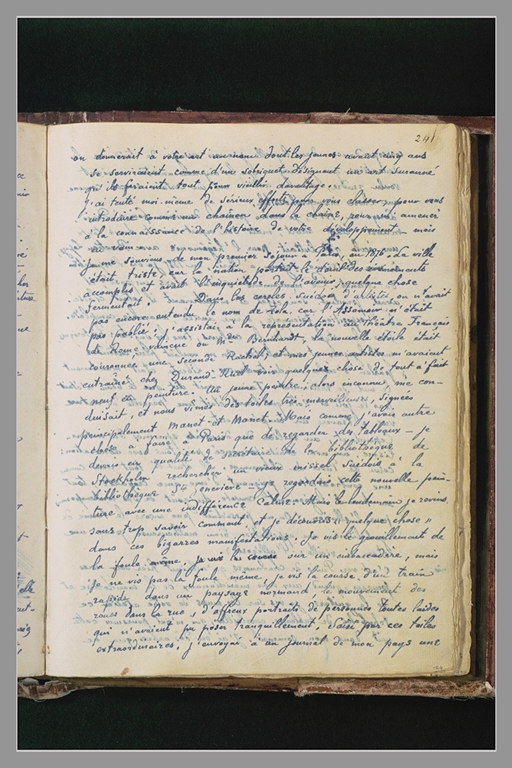 241
on donnerait à votre art un nom dont les jeunes avant cinq ans
se serviraient comme d'un sobriquet désignant un art suranné
qu'ils feraient tout pour vieillir davantage.
J'ai tenté moi-même de sérieux efforts pour vous classer, pour vous
introduire comme un chaînon dans la chaîne, pour m'amener
à la connaissance de l'histoire de votre développement, mais
en vain.
Je me souviens de mon premier séjour à Paris en 1876. La ville
était triste car la nation portait le deuil des évènements
accomplis et avait l'inquiétude de l'avenir; quelque chose
fermentait.
Dans les cercles suédois d'artistes on n'avait
pas encore entendu le nom de Zola, car l'Assommoir n'était
pas publié; j'assistai à la représentation au théâtre Français
de Rome vaincue où Me Bernhardt, la nouvelle étoile était
couronnée une seconde Rachel, et mes jeunes artistes m'avaient
entraîné chez Durand-Ruel voir quelque chose de tout à fait
neuf en peinture. Un jeune peintre, alors inconnu, me con-
duisait, et nous vîmes des toiles très merveilleuses, signées
principalement Manet et Monet. Mais comme j'avais autre
chose à faire à Paris que de regarder des tableaux — je
devais en qualité de secrétaire de la bibliothèque de
Stockholm rechercher un vieux missel suédois à la
bibliothèque Ste Geneviève — je regardais cette nouvelle pein-
ture avec une indifférence calme. Mais le lendemain je revins
sans trop savoir comment et je découvris "quelque chose"
dans ces bizarres manifestations. Je vis le grouillement de
la foule sur un embarcadère, mais
je ne vis pas la foule même; je vis la course d'un train
rapide dans un paysage normand, le mouvement des
roues dans la rue, d'affreux portraits de personnes toutes laides
qui n'avaient pu poser tranquillement. Saisi par ces toiles
extraordinaires, j'envoyai à un journal de mon pays une